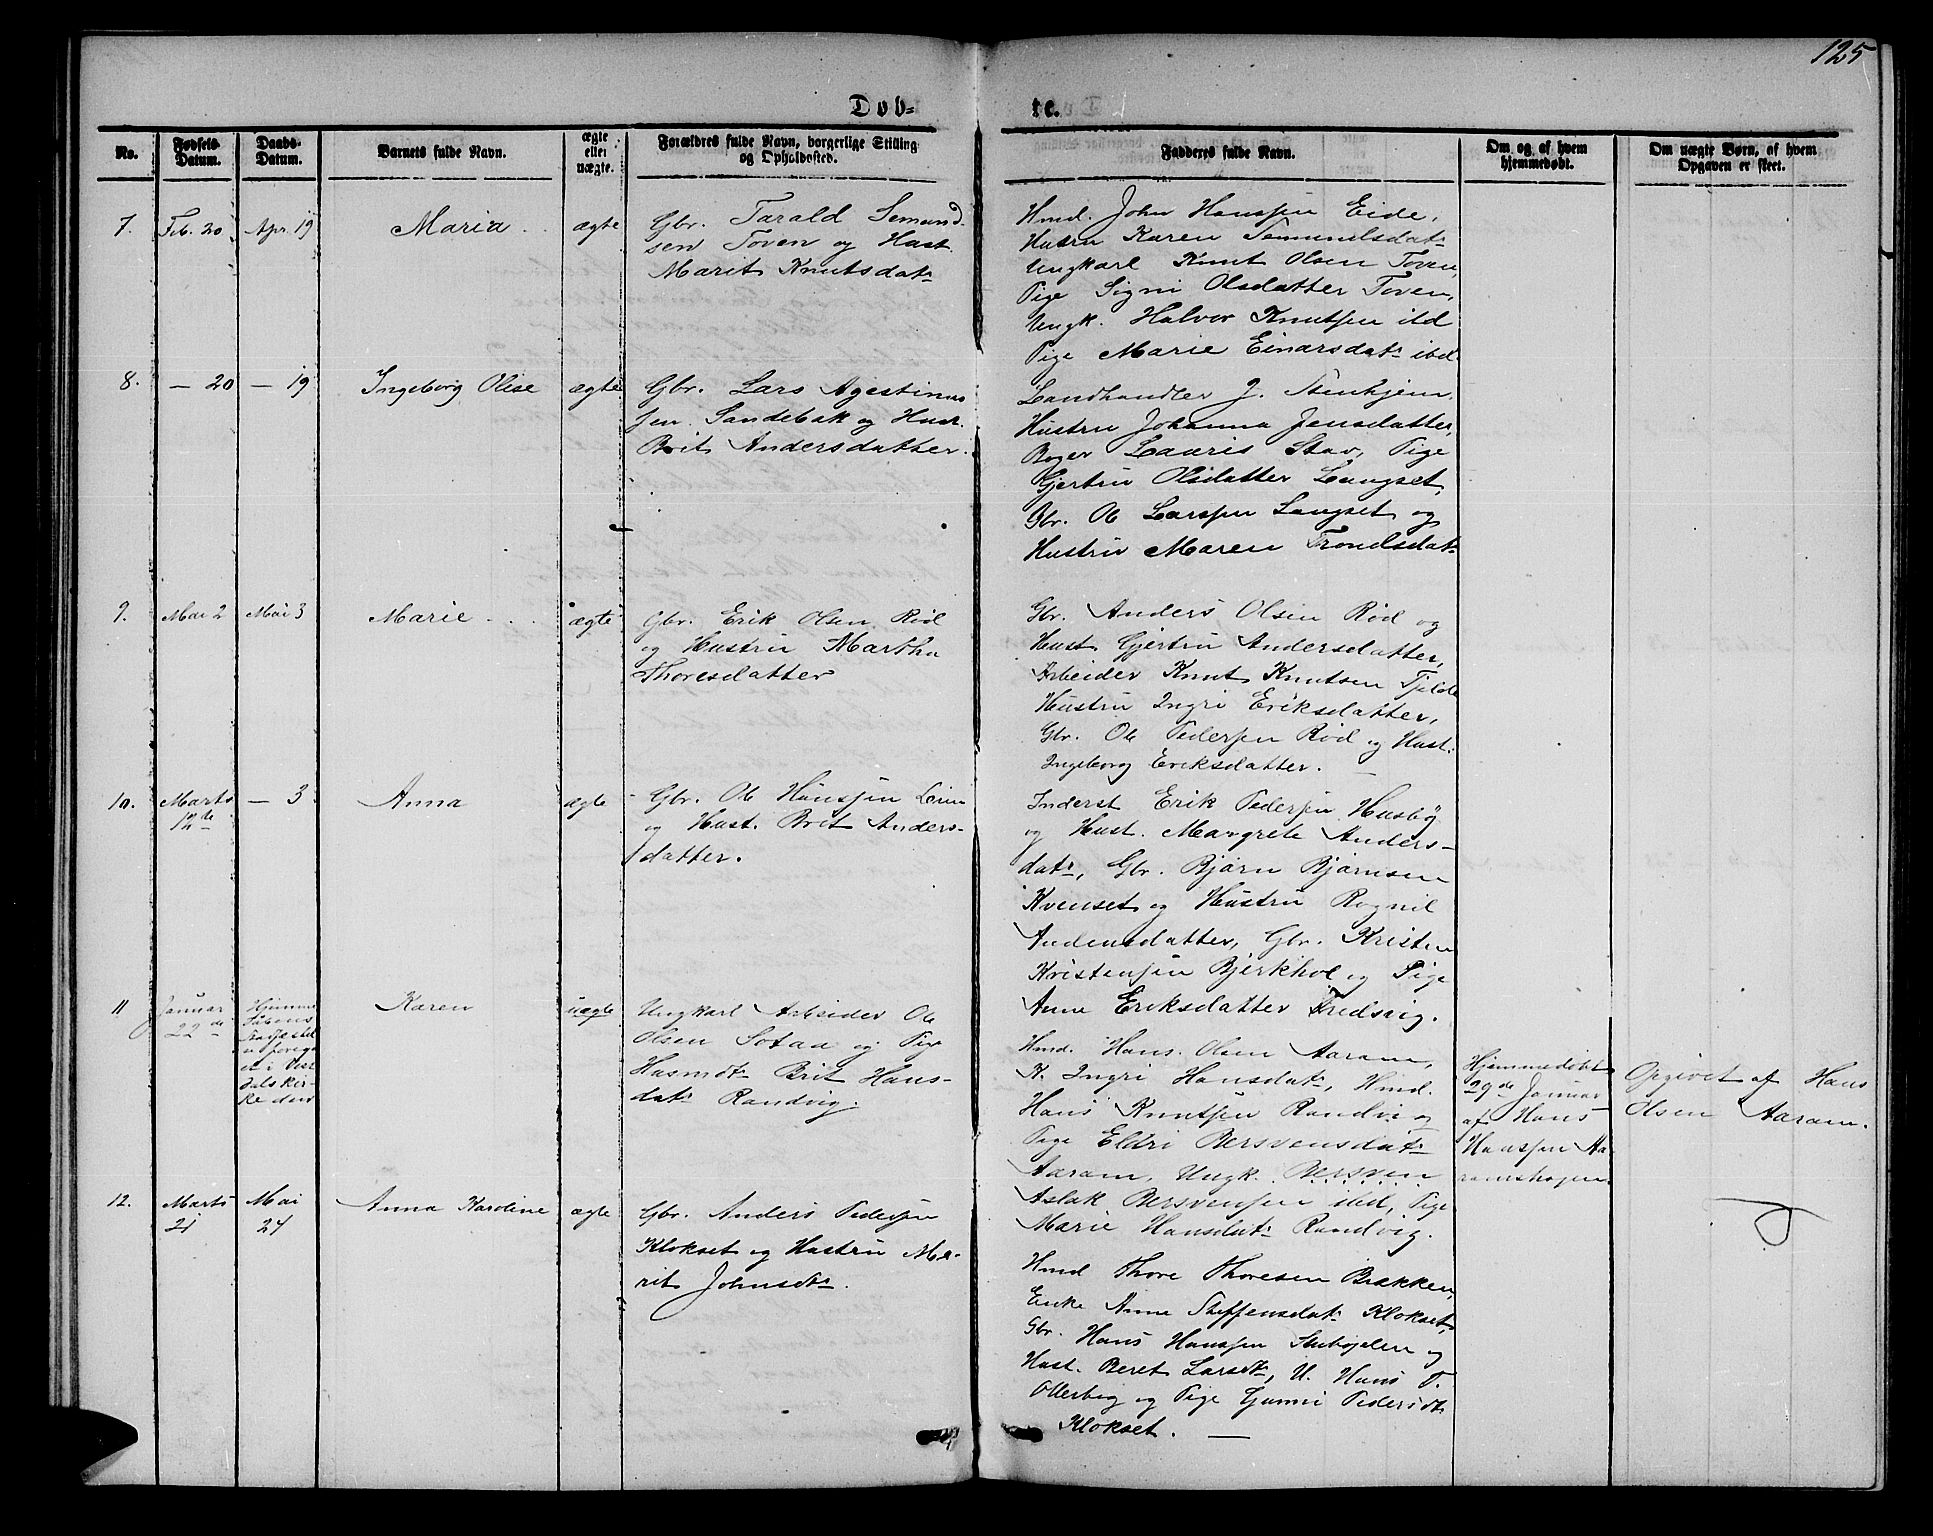 125
Døb-
te.
No.
Fødsels-
Datum.
Daabs-
Datum.
Barnets fulde Navn.
ægte
eller
uægte.
Forældres fulde Navn, borgerlige Stilling
og Opholdssted.
Fadderes fulde Navn.
Om og af hvem
hjemmedøbt.
Om uægte Børn, af hvem
Opgaven er skeet.
7.
Feb. 20
Apr. 19
Maria
ægte
Gbr. Tarald Semund
sen Toven og Hust.
Marit Knutsdatr
Hmd. John Hanssen Eide,
Hustru Karen Semundsdatr
Ungkarl Knut Olsen Toven,
Pige Signi Olsdatter Toven,
Ungk. Halvor Knutsen ibd
Pige Marie Einarsdatr ibd.
8.
— 20
— 19
Ingeborg Olise
ægte
Gbr. Lars Agestinus
sen Sandebak og Hust.
Brit Andersdatter.
Landhandler J. Stenhjem,
Hustru Johanna Jensdatter,
Lauris Stav, Pige
Gjertru Olsdatter Langset,
Gbr. Ole Larssen Langset og
Hustru Maren Trondsdatr
9.
Mai 2
Mai 3
Marie
ægte
Gbr. Erik Olsen Rød
og Hustru Martha
Thoresdatter
Gbr. Anders Olsen Rød og
Hust. Gjertru Andersdatter,
Arbeider Knut Knutsen Tjelde
Hustru Ingri Eriksdatter,
Gbr. Ole Pedersen Rød og Hust.
Ingeborg Eriksdatter. —
10.
Marts
12te
— 3
Anna
ægte
Gbr. Ole Hanssen
og Hust. Brit Anders-
datter.
Inderst Erik Pedersen Husby
og Hust. Margrete Anders-
datr, Gbr. Bjørn Bjørnsen
Kvenset og Hustru Ragnil
Andersdatter, Gbr. Kristen
Kristensen Bjerkhol og Pige
Anne Eriksdatter Fredsvig.
11
Januar
22de
Hjemme
Daabens
Kirke den
Karen
uægte
Ungkarl Arbeider Ole
Olsen Sotaa og Pige
Husmdtr Brit Hans-
datr Randvig.
Hmd. Hans Olsen Aaram,
K. Ingri Hansdatr, Hmd.
Hans Knutsen Randvig
Pige Eldri Bersvensdatr
Aaram, Ungk. Bersven
Aslak Bersvensen ibd, Pige
Marie Hansdatr Randvig.
Hjemmedøbt
29de Januar
af Hans
Hanssen Aa-
ramshagen
Opgivet af Hans
Olsen Aaram.
12.
Marts
21
Mai
24
Anna Karoline
ægte
Gbr. Anders Pedersen
Klokset og Hustru Ma-
rit Johnsdtr.
Hmd Thore Thoresen Brækken,
Enke Anne Steffensdatr Klokset,
Gbr. Hans Hanssen og
Hust. Beret Larsdtr, U. Hans P.
Ollerbeg og Pige Gunni Pedersdtr
Klokset. —